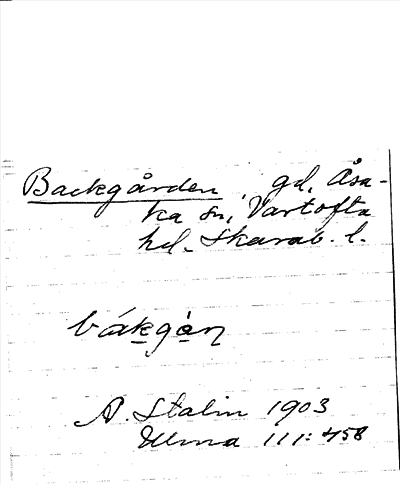 Backgården, gd, Åsa-
ka sn, Vartofta
hd. Skarab. l.
bákgàn
A. Stalin 1903
Ulma 111: 458